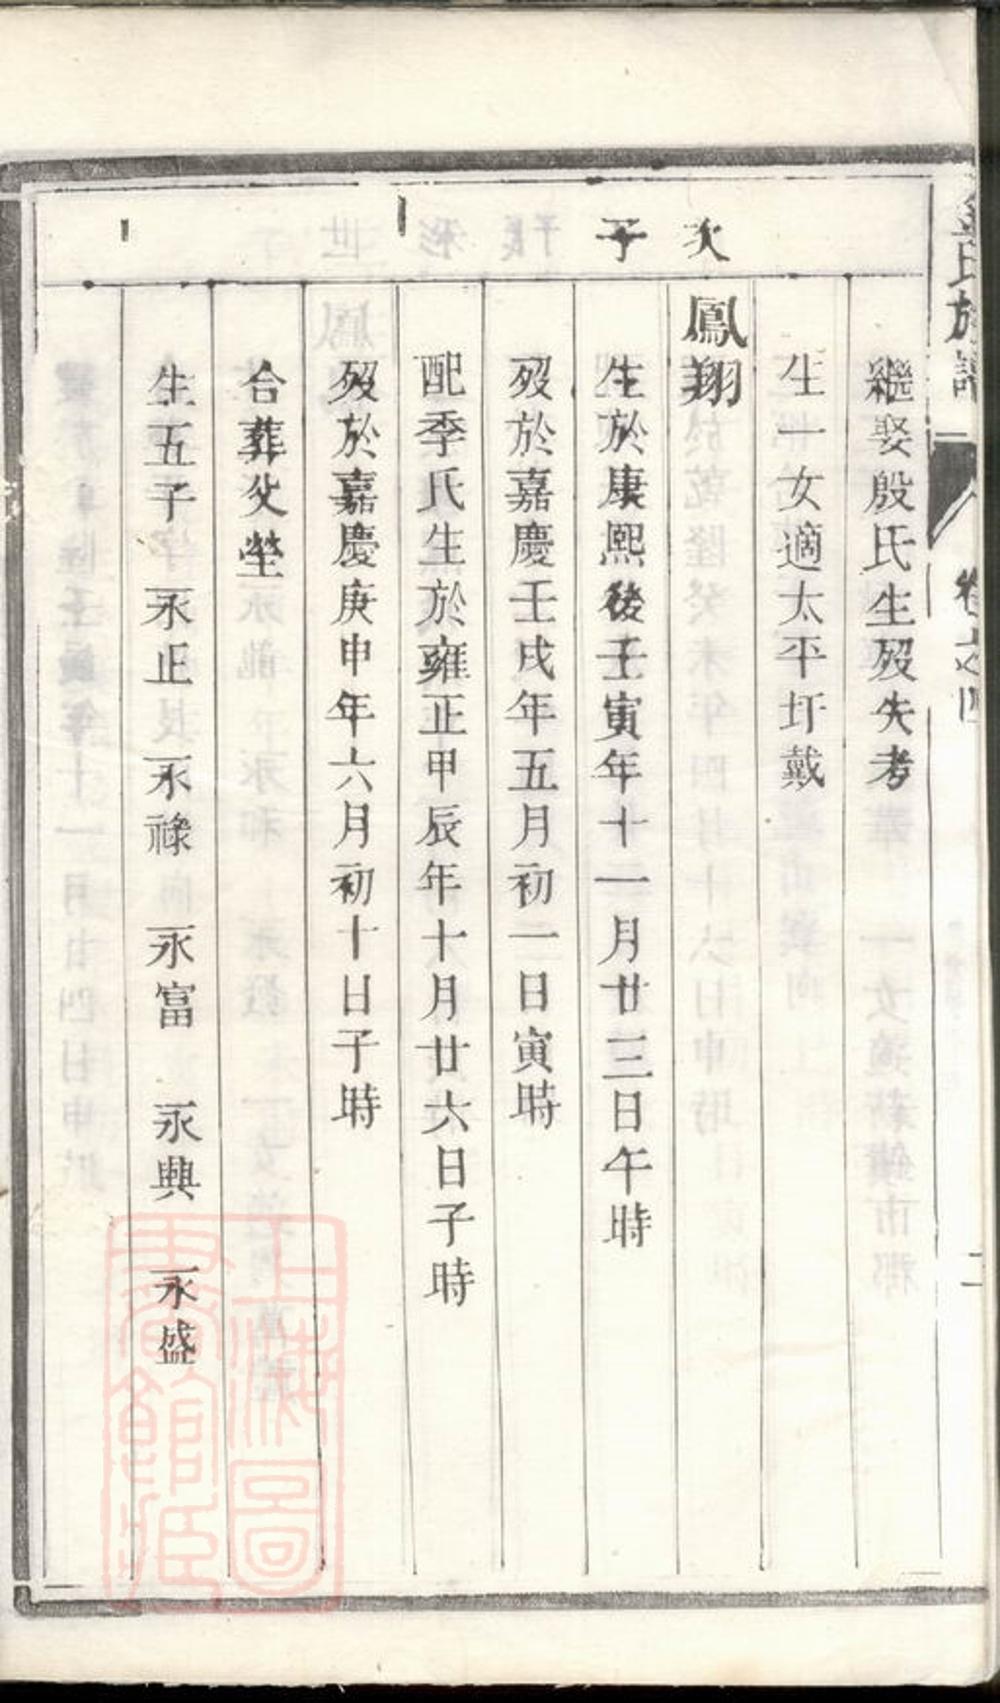 氏族譜
卷之四
繼娶殷氏生歿失考
生一女適太平圩戴
次子
鳳翔
生於康熙後壬寅年十一月廿三日午時
歿於嘉慶壬戌年五月初一日寅時
配季氏生於雍正甲辰年十月廿六日子時
歿於嘉慶庚申年六月初十日子時
合葬父塋
生五子 永正 永祿 永富 永興 永盛
上海圖書館藏